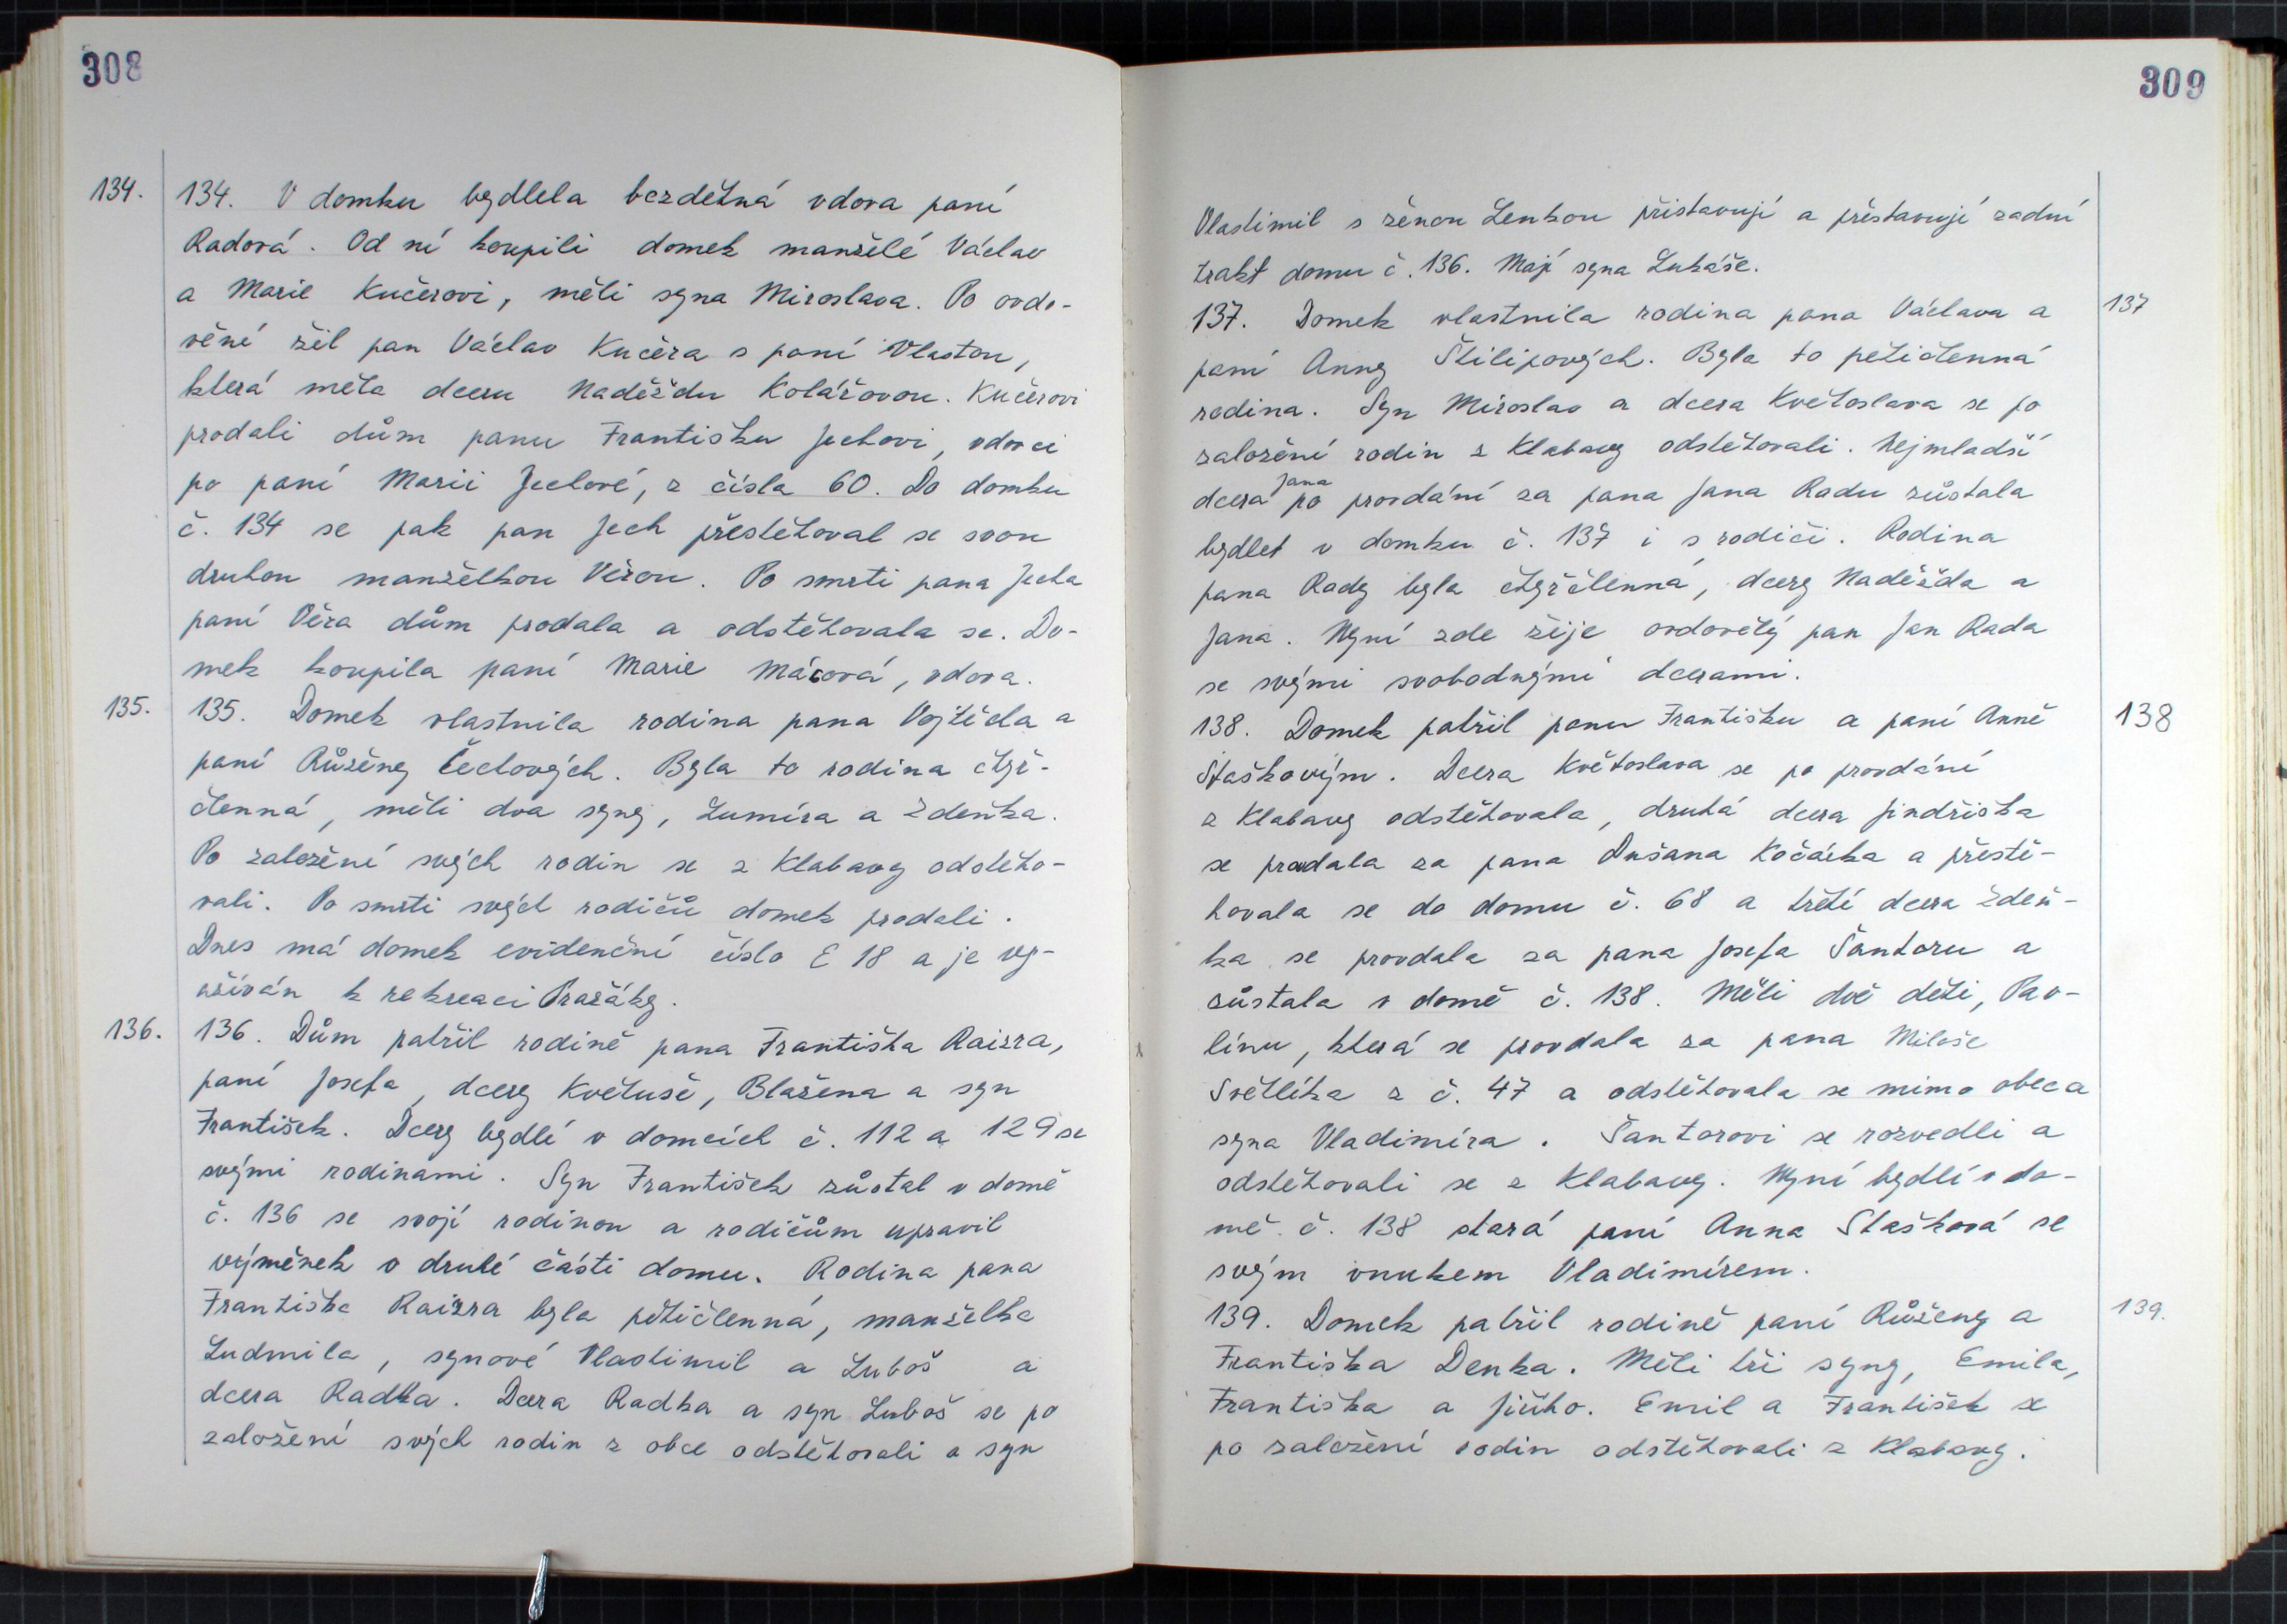 308
134.
134. V domku bydlela bezdětná vdova paní
Radová. Od ní koupili domek manželé Václav
a Marie Kučerovi, měli syna Miroslava. Po ovdo-
vění žil pan Václav Kučera s paní Vlastou,
která měla dceru Naděždu Kolářovou. Kučerovi
prodali dům panu Františku Jechovi, vdovci
po paní Marii Jechové, z čísla 60. Do domku
č. 134 se pak pan Jech přestěhoval se svou
druhou manželkou Věrou. Po smrti pana Jecha
paní Věra dům prodala a odstěhovala se. Do-
mek koupila paní Marie Mácová, vdova.
135.
135. Domek vlastnila rodina pana Vojtěcha a
paní Růženy Čechových. Byla to rodina čtyř-
členná, měli dva syny, Lumíra a Zdeňka.
Po založení svých rodin se z Klabavy odstěho-
vali. Po smrti svých rodičů domek prodali.
Dnes má domek evidenční číslo E 18 a je vy-
užíván k rekreaci Pražáky.
136.
136. Dům patřil rodině pana Františka Raizra,
paní Josefa, dcery Květuše, Blažena a syn
František. Dcery bydlí v domcích č. 112 a 129 se
svými rodinami. Syn František zůstal v domě
č. 136 se svojí rodinou a rodičům upravil
výměnek v druhé části domu. Rodina pana
Františka Raizra byla pětičlenná, manželka
Ludmila, synové Vlastimil a Luboš a
dcera Radka. Dcera Radka a syn Luboš se po
založení svých rodin z obce odstěhovali a syn
309
Vlastimil s ženou Lenkou přistavují a přestavují zadní
trakt domu č. 136. Mají syna Lukáše.
137
137. Domek vlastnila rodina pana Václava a
paní Anny Štilipových. Byla to pětičlenná
rodina. Syn Miroslav a dcera Květoslava se po
založení rodin z Klabavy odstěhovali. Nejmladší
dcera Jana po provdání za pana Jana Radu zůstala
bydlet v domku č. 137 i s rodiči. Rodina
pana Rady byla čtyřčlenná, dcery Naděžda a
Jana. Nyní zde žije ovdovělý pan Jan Rada
se svými svobodnými dcerami.
138
138. Domek patřil panu Františku a paní Anně
Staškovým. Dcera Květoslava se po provdání
z Klabavy odstěhovala, druhá dcera Jindřiška
se provdala za pana Dušana Kočárka a přestě-
hovala se do domu č. 68 a třetí dcera Zdeň-
ka se provdala za pana Josefa Šantoru a
zůstala v domě č. 138. Měli dvě děti, Pav-
línu, která se provdala za pana Miloše
Světlíka z č. 47 a odstěhovala se mimo obec a
syna Vladimíra. Šantorovi se rozvedli a
odstěhovali se z Klabavy. Nyní bydlí v do-
mě č. 138 stará paní Anna Stašková se
svým vnukem Vladimírem.
139.
139. Domek patřil rodině paní Růženy a
Františka Denka. Měli tři syny, Emila,
Františka a Jiřího. Emil a František se
po založení rodin odstěhovali z Klabavy.